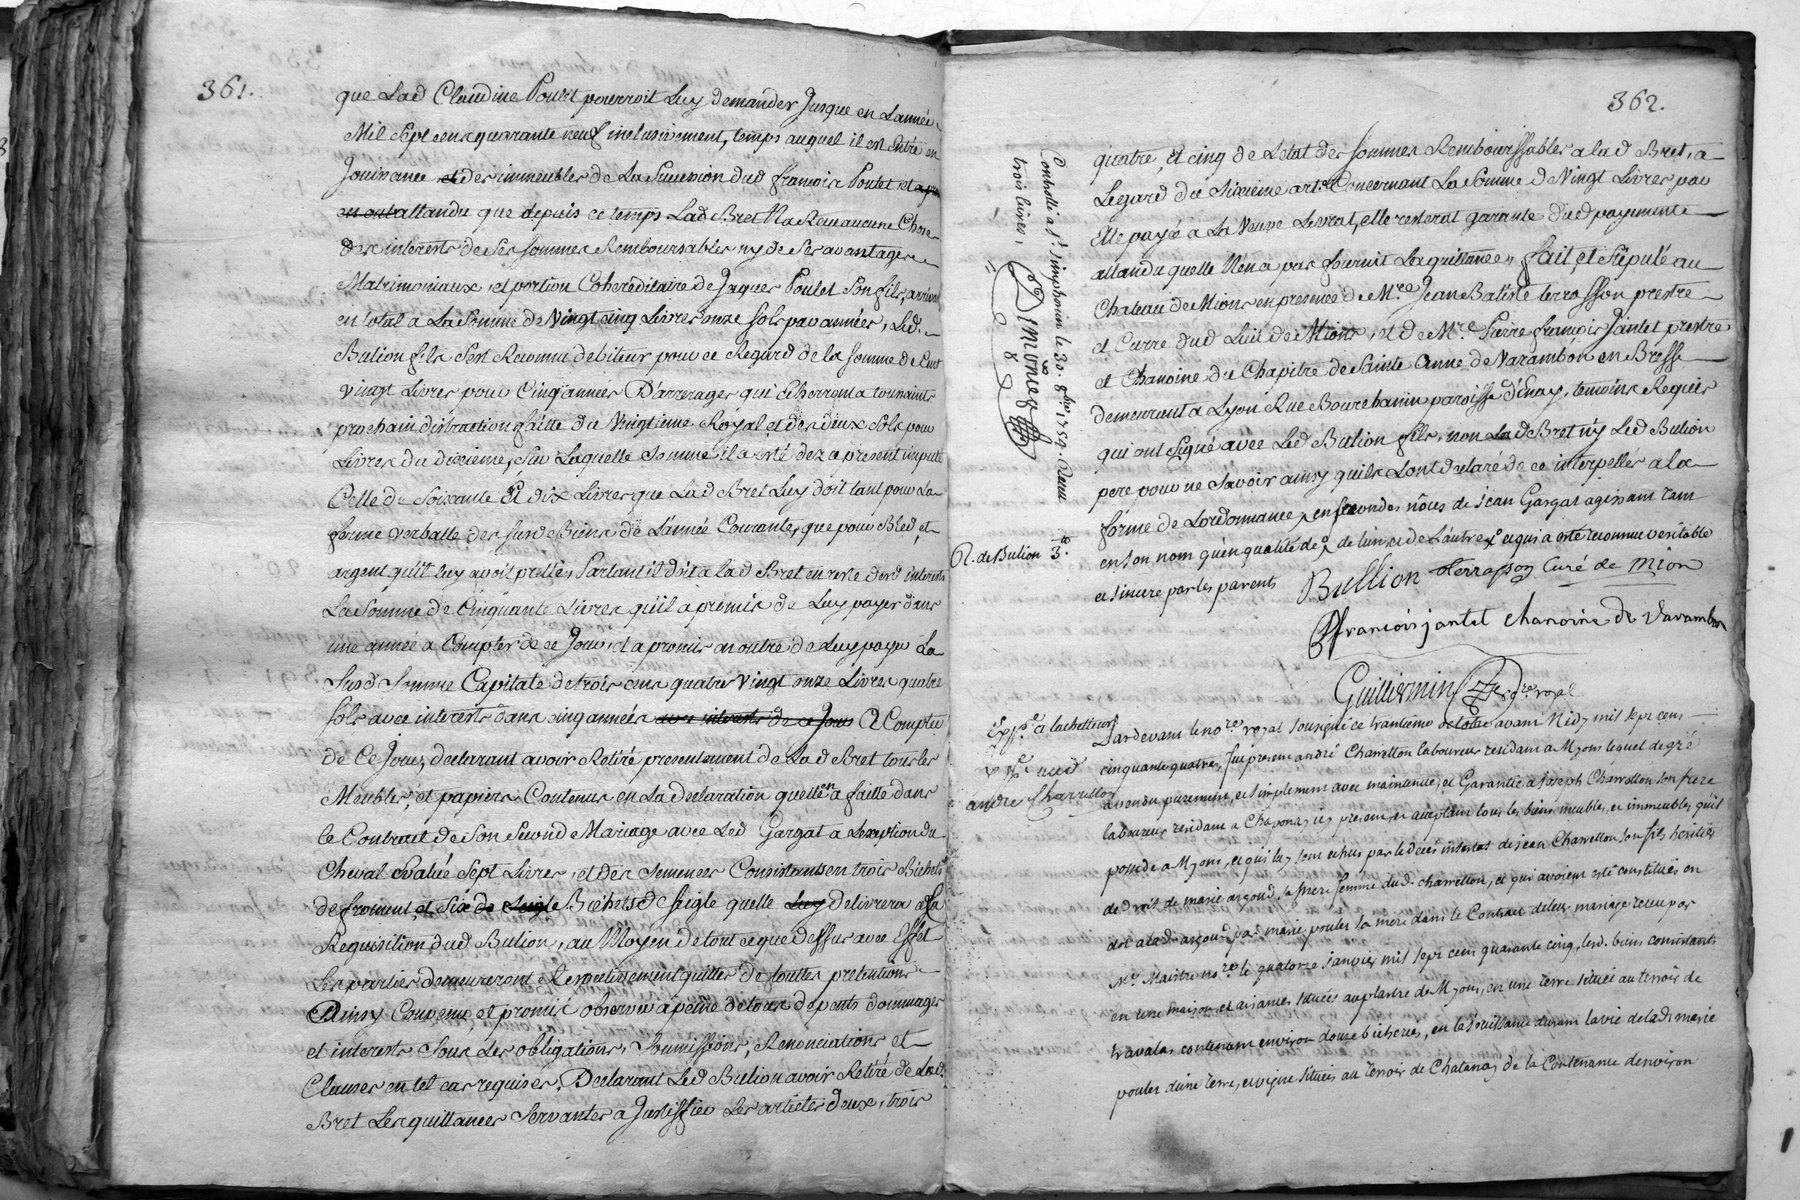 361.
que Lad Claudine Poulet pourroit Luy demander Jusque en Lannée
Mil Sept cens quarante neuf inclusivement, temps auquel il est Entré en
Jouissance et des immeubles de La Succession dud françois Poulet et
en outre attandu que depuis ce temps Lad Bret Na Retiré aucune Chose
des interests de Ses sommes Remboursables ny de Ses avantages
Matrimoniaux, et portion Cohereditaire de Jaques Poulet Son fils, arrivant
en total a La Somme de Vingt cinq Livres onze sols par années, Led.
Bulion fils Sest Reconnu debiteur pour ce Regard de la somme de Cent
vingt Livres pour Cinq années D'arrerages qui Echorront a toussaints
prochain distraction faitte du Vingtieme Royal et des deux Sols pour
Livres du dixieme, Sur Laquelle Somme il a esté dez a present imputé
Celle de Soixante Et dix Livres que Lad Bret Luy doit tant pour La
ferme verballe des susd Biens de L'année Courante, que pour Bled, et
argent qu'il luy avoit prettés, Partant il doit a lad Bret en reste desd interests
La Somme de Cinquante Livres qu'il a promis de Luy payer dans
une année a Compter de ce Jour, et a promis en outre de Luy payer La
Susd Somme Capitale de trois cens quatre Vingt onze Livres quatre
sols avec interests dans cinq années avec interests de ce Jour A Compter
de Ce Jour, declarant avoir Retiré presentement de Lad Bret tous les
Meubles, et papiers Contenus en La declaration quelle en a faitte dans
le Contrait de Son Second Mariage avec Led Gargat a Lexception du
Cheval Evalué Sept Livres, et des Semences Consistants en trois Bichets
de froment et Six de Seigle Bichets de seigle quelle Luy delivrera a La
Requisition dud Bulion, au Moyen de tout ce que Dessus avec Effet
Les parties demeureront Respectivement quittes de touttes pretentions
Ainsy Convenu et promis observer a peine de tous depents dommages
et interests Sous Les obligations, Soumissions, Renonciations et
Clauses en tel cas requises, Declarant Led Bulion avoir Retiré de Lad.
Bret Les quittances Servantes a Justiffier Les articles deux, trois
362.
quatre, Et cinq de L'etat des sommes Remboursables a lad Bret, a
Legard du Sixieme art.e Concernant La Somme de Vingt Livres par
Elle payée à La Veuve Levrat, elle resterat garante dud payement
attandu quelle N'en a pas fournit La quittance, fait et stipulé au
Chateau de Mions en presence de M.re Jean Batiste terrasson prestre
et Curre dud Lieu de Mions, et de M.re Pierre françois Jantet prestre
et Chanoine du Chapitre de Sainte Anne de Varambon en Bresse
demeurant a Lyon Rue Bourchanin paroisse d'Enay, temoins Requis
qui ont Signé avec Led Bulion fils, non Lad Bret ny Led Bulion
pere pour ne Savoir ainsy quils L'ont declaré de ce interpellés a la
forme de Lordonnance, en secondes nôces de Jean Gargat agissant tant
en son nom qu'en qualité de de lun, et de L'autre, ce qui a esté reconnu veritable
et sincere par les parents
Bullion Terrasson Curé de Mion
P françois jantet chanoine de Varambon
Guilliermin no.re royal
Controllé a S.t Simphorien le 30. 8.bre 1754. Receu
trois livres,
Dimônier
R. de Bulion 3.
Exp.é a lachetteur
andré Charretton
Pardevant le no.re royal soussigné ce trantieme octobre avant Midy mil sept cens
cinquante quatre, fut present andré Charretton laboureur residant a Myons lequel de gré
a vendu purement, et simplement avec maintenüe, et Garantie a Joseph Charretton son frere
laboureur residant a Chaponay icy present, et acceptant tous les biens meubles, et immeubles quil
possede a Myons, et qui luy sont echus par le déces intestat de jean Charretton son fils heritier
de droit de marie argoud sa mere femme dud. charretton, et qui avoient esté constitués en
dot a lad. argoud par marie poulet sa mere dans le Contrat de leur mariage receu par
M.e Maitre no.re le quatorze Janvier mil sept cens quarante cinq, lesd. biens consistants
en une maison, et aisances situées au plastre de Myons, en une terre située au terroir de
travalas contenant environ douze bicherées, en la Joüissance durant la vie de lad. marie
poulet d'une terre, et vigne situées au terroir de Chatanay de la Contenance d'environ